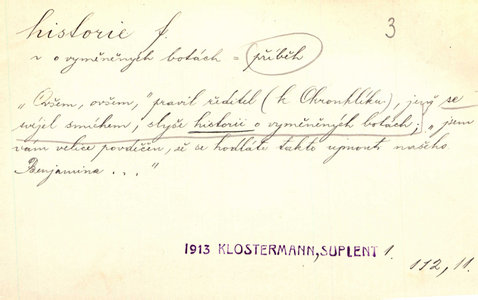 historie f. 3
~ o vyměněných botách = příběh
„Ovšem, ovšem," pravil ředitel (k Chronhlíku), jenž se
svíjel smíchem, slyše historii o vyměněných botách; „jsem
vám velice povděčen, že se hodláte takto ujmouti našeho
Benjamina . . . "
1913 KLOSTERMANN, SUPLENT 1.
112, 11.